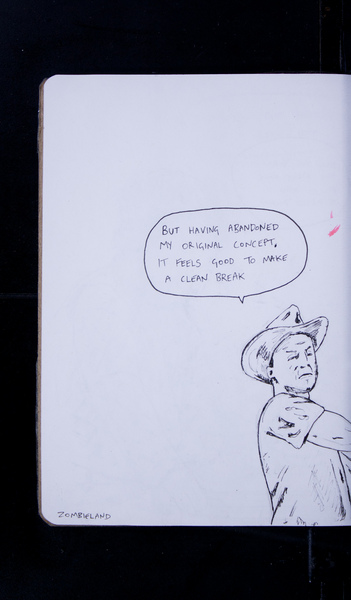 BUT HAVING ABANDONED
MY ORIGINAL CONCEPT,
IT FEELS GOOD TO MAKE
A CLEAN BREAK
ZOMBIELAND